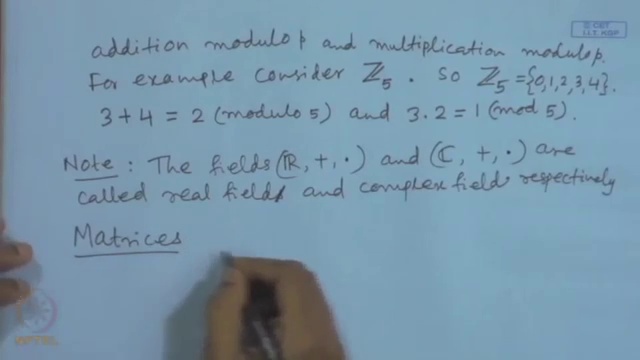 © CET
I.I.T. KGP
addition modulo p and multiplication modulo p.
For example consider ℤ₅. So ℤ₅ = {0,1,2,3,4}.
3 + 4 = 2 (modulo 5) and 3.2 = 1 (mod 5).
Note : The fields (ℝ, +, ·) and (ℂ, +, ·) are
called real field and complex field respectively
Matrices
NPTEL